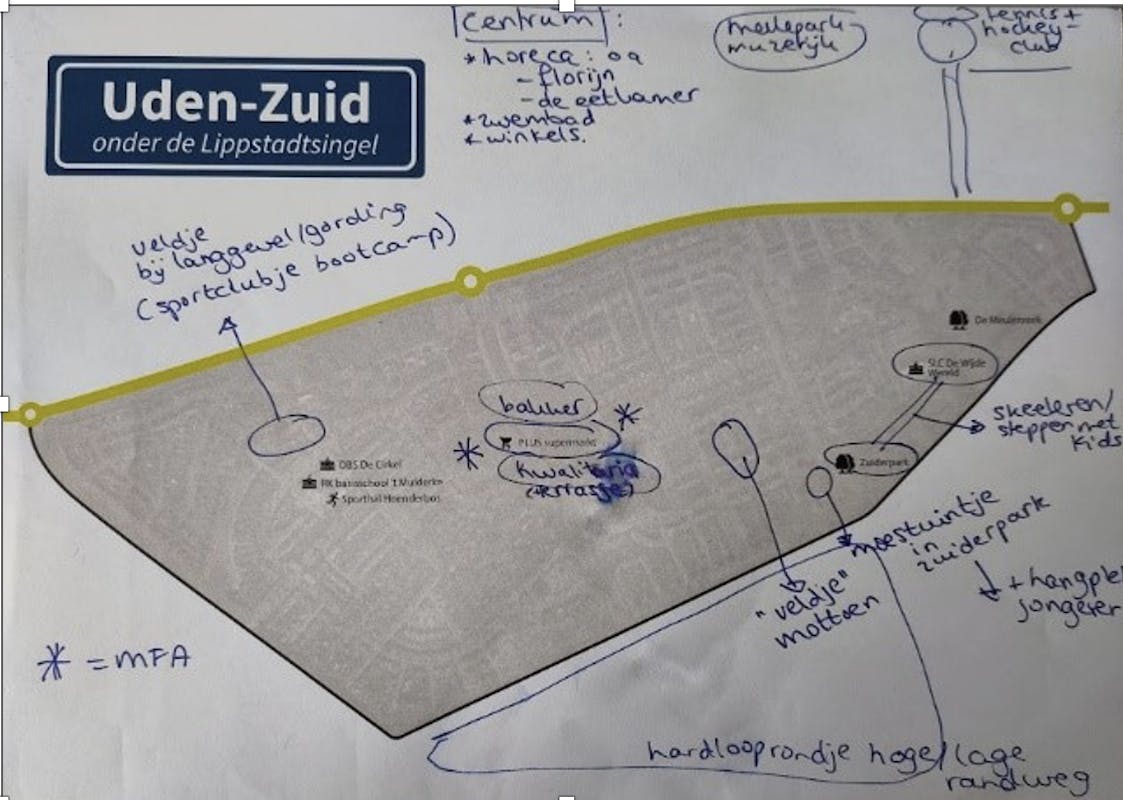 Centrum:
* horeca: oa
- florijn
- de eetkamer
* zwembad
* winkels.
muzerijk
tennis +
hockey-
club
Uden-Zuid
onder de Lippstadtsingel
veldje
bij langgevel/gording
(sportclubje bootcamp)
De Meulenreek
SLC De Wijde
Wereld
skeeleren/
steppen met
kids
bakker
PLUS supermarkt
Kwalitaria
(terrasje)
Zuiderpark
OBS De Cirkel
RK basisschool 't Mulderke
Sporthal Hoenderbos
moestuintje
in
zuiderpark
+ hangplek
jongeren
"veldje"
mottoen
* = MFA
hardlooprondje hoge/lage
randweg